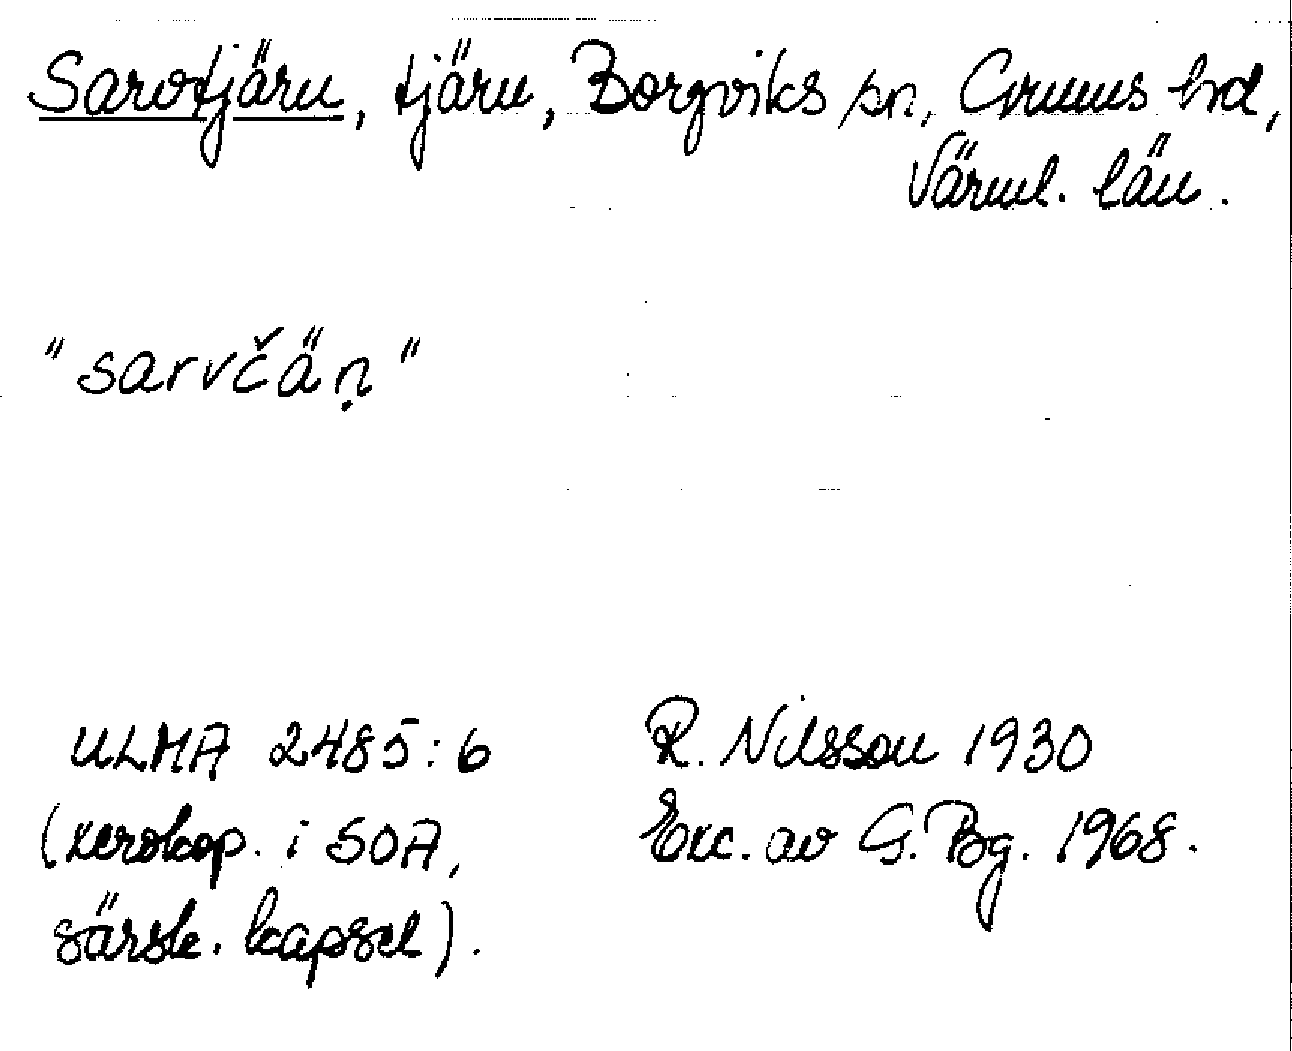 Sarvtjärn, tjärn, Borgviks sn, Grums hrd,
Värml. län.
"sarvčäṇ"
ULMA 2485:6
(xerokop. i SOA,
särsk. kapsel).
R. Nilsson 1930
Exc. av G. Bg. 1968.